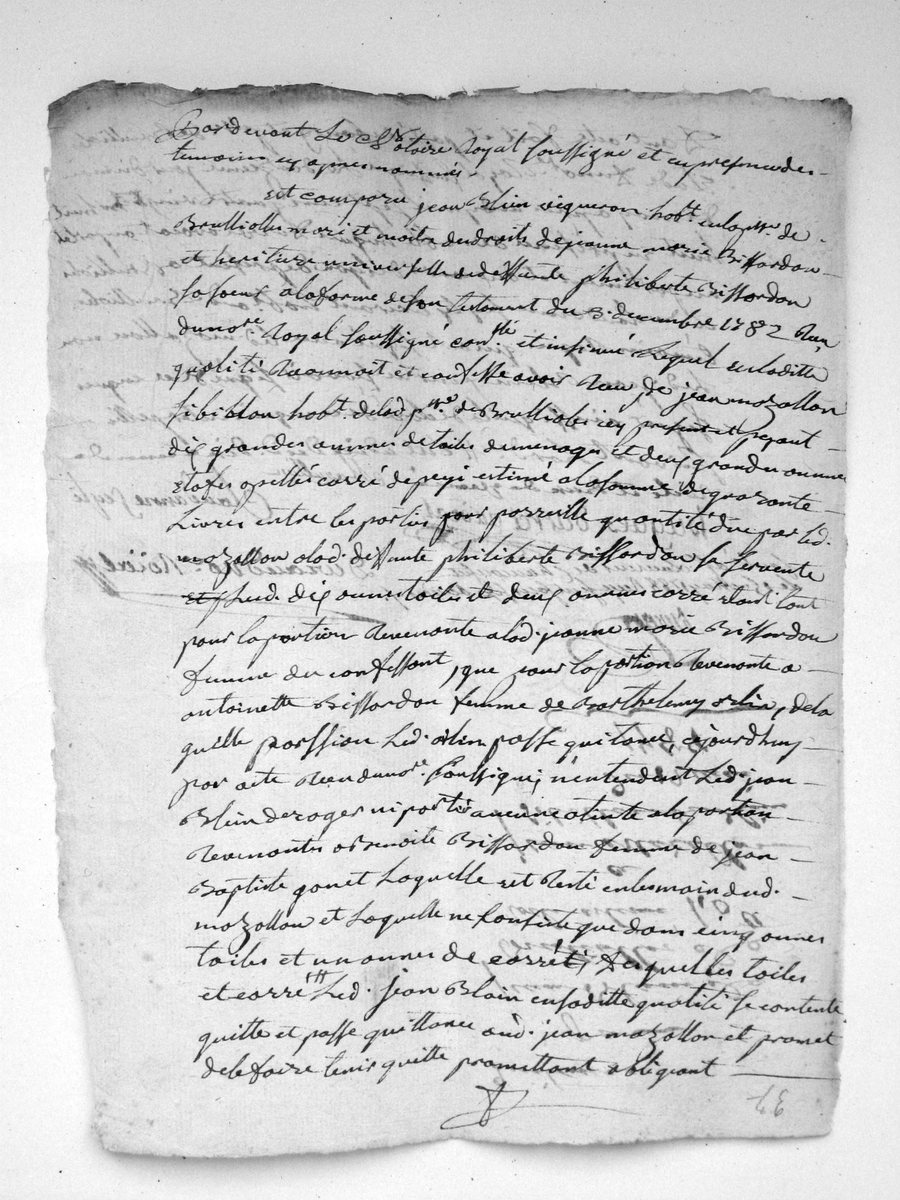 Pardevant Le Notaire Royal soussigné et en presence des
temoins cy apres nommés
est comparu jean Blein vigneron habt. en la psse. de
Brulliolles mari et maitre des droits de jeanne marie Biffardon
et heritiere universelle de deffunte philiberte Biffardon
sa soeur a la forme de son testament du 3. decembre 1782 Reçu
du nore. Royal soussigné con.llé et insinué Lequel en laditte
qualité Reconnoit et confesse avoir Reçu de jean mozallon
habt. de lad. psse. de Brulliolles icy present et payant
dix grandes aunnes de toiles de menages et deux grandes aunnes
apellés carré de estimé a la somme de quarante
Livres entre les parties pour pareille quantité due par led.
mozallon a lad. deffunte philiberte Biffardon sa servante
Lesd. dix aunes toiles et deux aunnes carré etant tant
pour la portion Revenante a lad. jeanne marie Biffardon
femme du confessant, que pour la portion Revenante a
antoinette Biffardon femme de Barthelemy , de la
quelle portion Led. passe quitance, cejourdhuy
par acte Reçu du nore. soussigné; n'entendent Led. jean
Blein deroger ni porter aucune atinte a la portion
Revenantes a Benoite Biffardon femme de jean
Baptiste gonet Laquelle est Resté en les main dud.
mozallon et Laquelle ne consiste que dans cinq aunes
toiles et un aunes de carré, Desquelles toiles
et carré Led. jean Blein en saditte qualité se contente
quitte et passe quittance aud. jean mozallon et promet
de le faire tenir quitte promettant obligeant
37